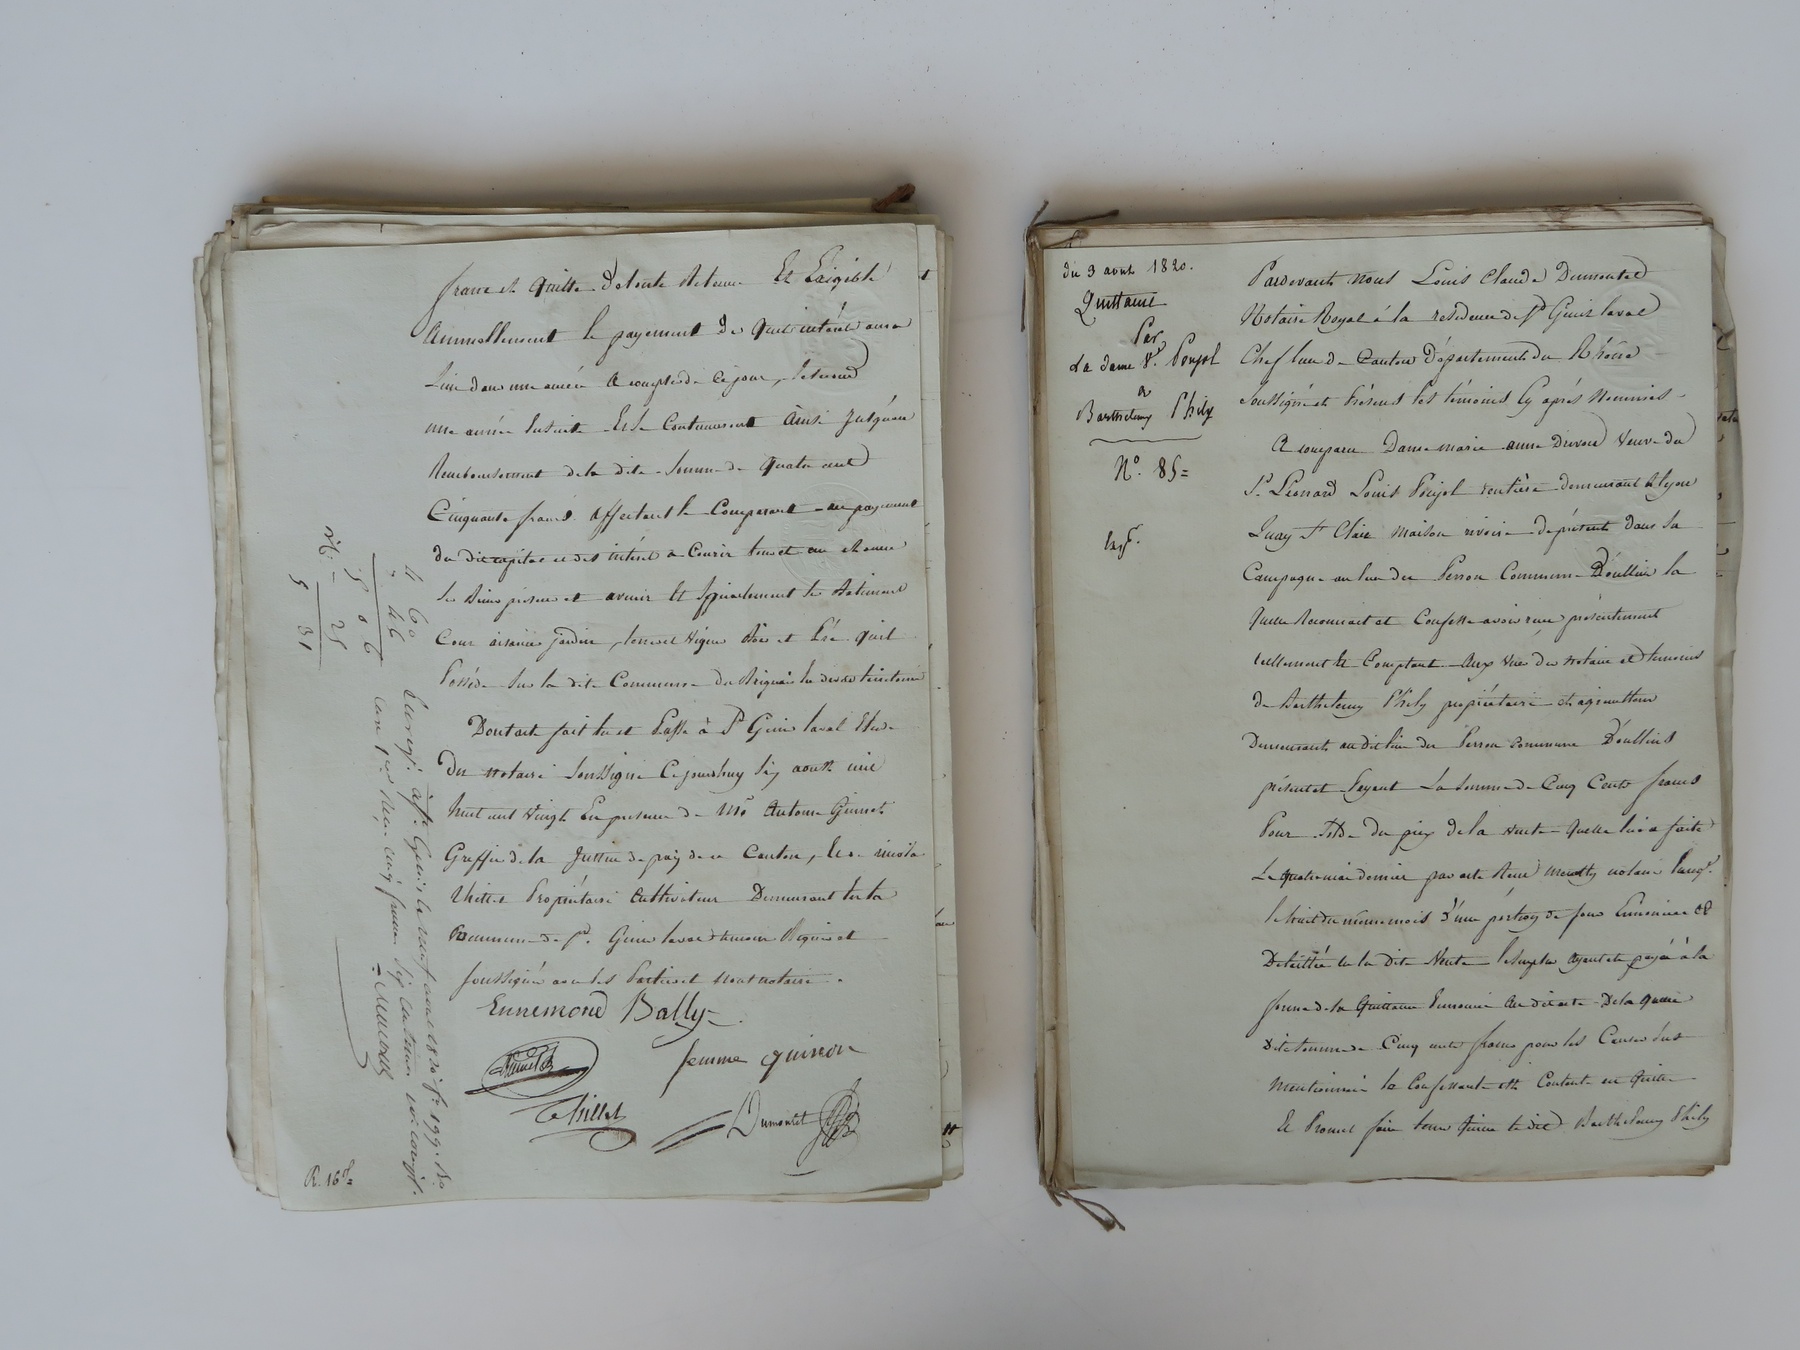 franc et quitte de toute retenue Et Exigible
Annuellement le payement du quel intérêt aura
lieu dans une année A compter de ce jour, le second
une année Ensuite Et de Continuement Ainsi Jusqu'au
Remboursement de la dite Somme de quatre cent
Cinquante francs affectant le Comparant au payement
du dit capital et des intérêt a Courir tous et
ses Biens présens et avenir Et Spécialement les Batiment
Cour aisances jardin, terre et Vigne Bois et Pré qu'il
Possède Sur la dite Commune de Brignais lieu
Dont acte fait lu et Passé à St Genis laval Etude
Du notaire Soussigné Ce jourd'huy Six aoust mil
huit cent Vingt En présence de Mre Antoine Guinet
Greffier de la Justice de paix de ce Canton, Et de
Thillet Propriétaire Cultivateur Demeurant En la
Commune de St Genis laval témoins Requis et
Soussignés avec les Parties et nous notaire.
Ennemond Bally
femme guinon
Thillet
Dumontet
4 60
46
5 06
25
5 31
R. 16
du 3 avril 1820.
Quittance
Par
La dame Ve. Poujol
a
Barthelemy Phily
N°. 85=
Exp.
Pardevant nous Louis Claude Dumontet
Notaire Royal á la residence de St Genis laval
Chef lieu de Canton Département du Rhône
Soussigné et Présens les témoins Cy après Nommés
A comparu Dame marie anne Veuve du
Sr. Léonard Louis Poujol rentière demeurant à Lyon
Quay St Clair maison rivoire de présent dans sa
Campagne au lieu du Perron Commune D'oullins la
quelle Reconnait et Confesse avoir reçu présentement
réellement Et Comptant Aux Vues du notaire et témoins
de Barthelemy Phily propriétaire et agriculteur
Demeurant au dit lieu du Perron Commune D'oullins
présent et Payant La Somme de Cinq Cents francs
Pour Solde du prix de la Vente quelle lui a faite
Le quatre mai dernier par acte Reçu notaire Enreg.
le huit du même mois d'une portion de fond Ennoncée et
Détaillée en la dite Vente le Surplus Ayant été payé à la
forme de la Quittance Ennoncée Au dit acte De la quelle
Dite Somme de Cinq cents francs pour les Causes Sus
Mentionnées la Confessante Est Contente en quitte
Et Promet faire tenir Quitte le dit Barthelemy Phily